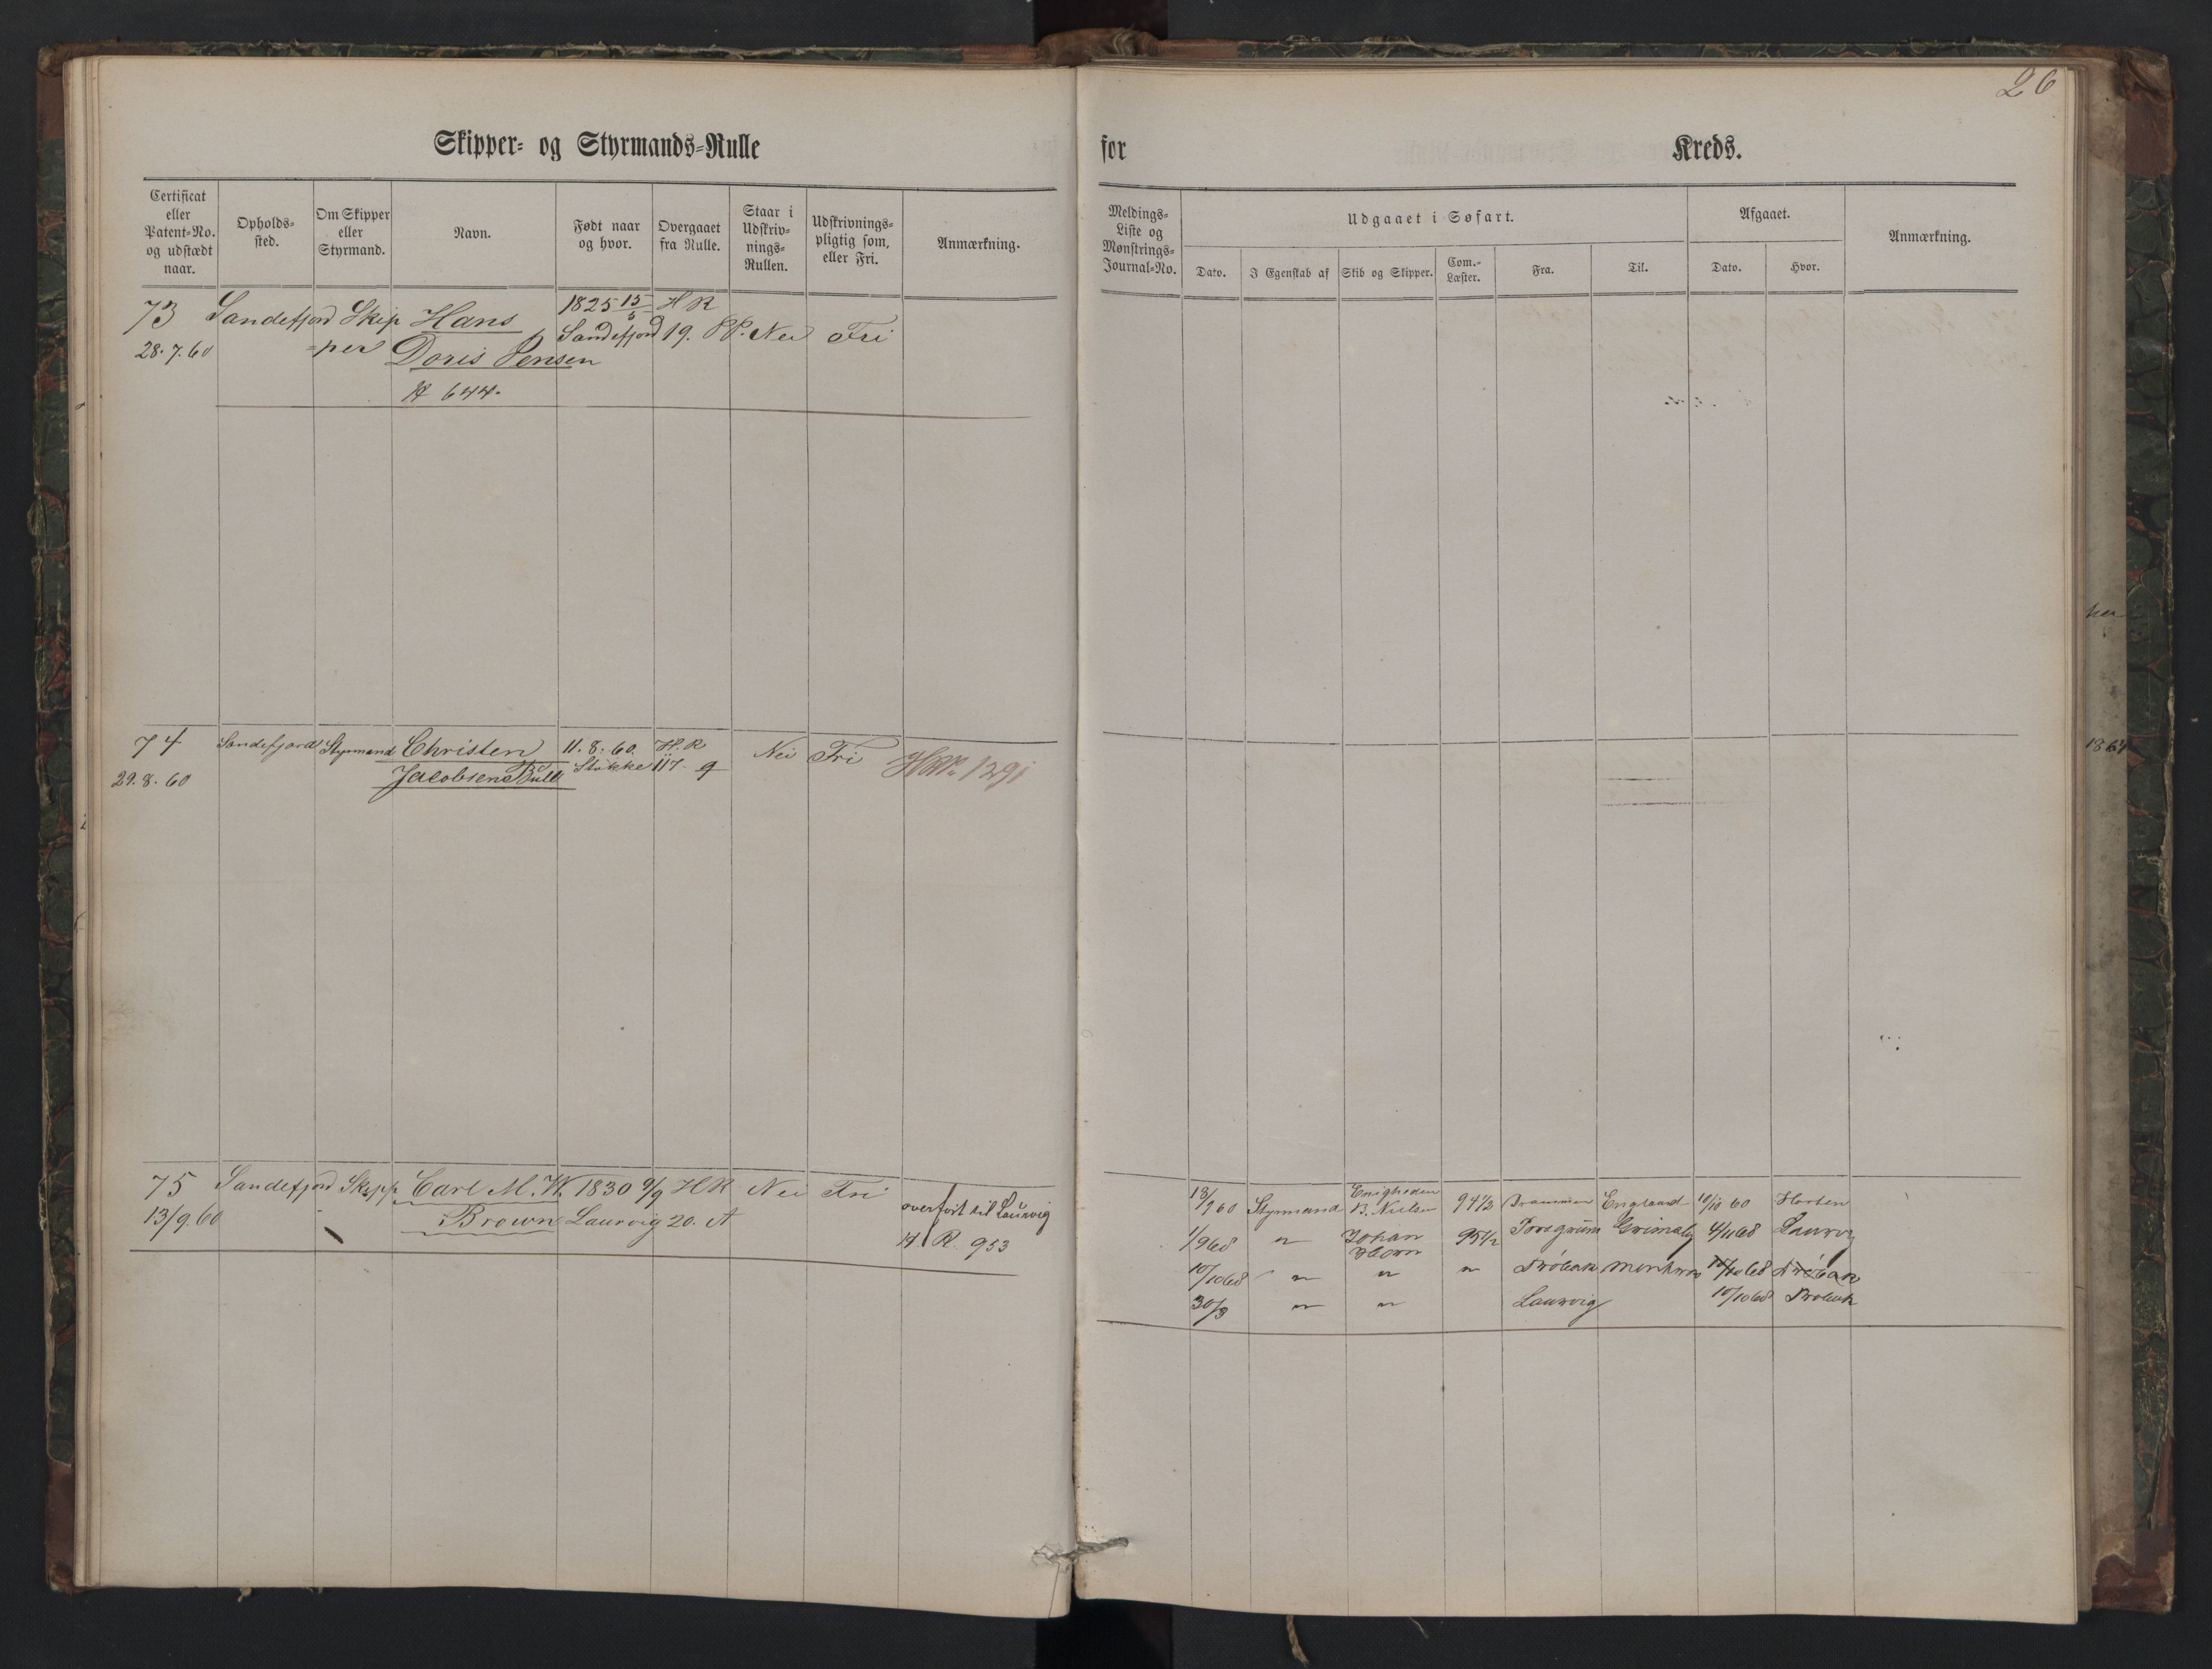 26
Skipper- og Styrmands-Rulle
for Kreds.
Certificat eller Patent-No. og udstædt naar.
Opholds-sted.
Om Skipper eller Styrmand.
Navn.
Født naar og hvor.
Overgaaet fra Rulle.
Staar i Udskriv-nings-Rullen.
Udskrivnings-pligtig som, eller Fri.
Anmærkning.
Meldings-Liste og Mønstrings-Journal-No.
Udgaaet i Søfart.
Dato.
I Egenskab af
Skib og Skipper.
Com.-Læster.
Fra.
Til.
Afgaaet.
Dato.
Hvor.
Anmærkning.
73 Sandefjord Skip Hans 1825 15/5 H R
28.7.60 =per Doris Jensen Sandefjord 19. Nei Fri
H 644.
74 Sandefjord Styrmand Christen 11.8.60. H.R Nei Fri 1291
29.8.60 Jacobsen Bull Stokke 117 9
75 Sandefjord Skipp Carl M. W. 1830 9/9 H R Nei Fri overført til Laurvig
13/9.60 Brown Laurvig 20. A H R. 953
13/9 60 Styrmand Enigheden B. Nielsen 94 1/2 Drammen England 10/10 60 Horten
1/9 68 " Johan Horn 95 1/2 Porsgrund Grimsby 4/11 68 Laurvig
10/10 68 " " " Drøbak 10/10 68 Drøbak
30/3 " " Laurvig 10/10 68 Drøbak
her
1864